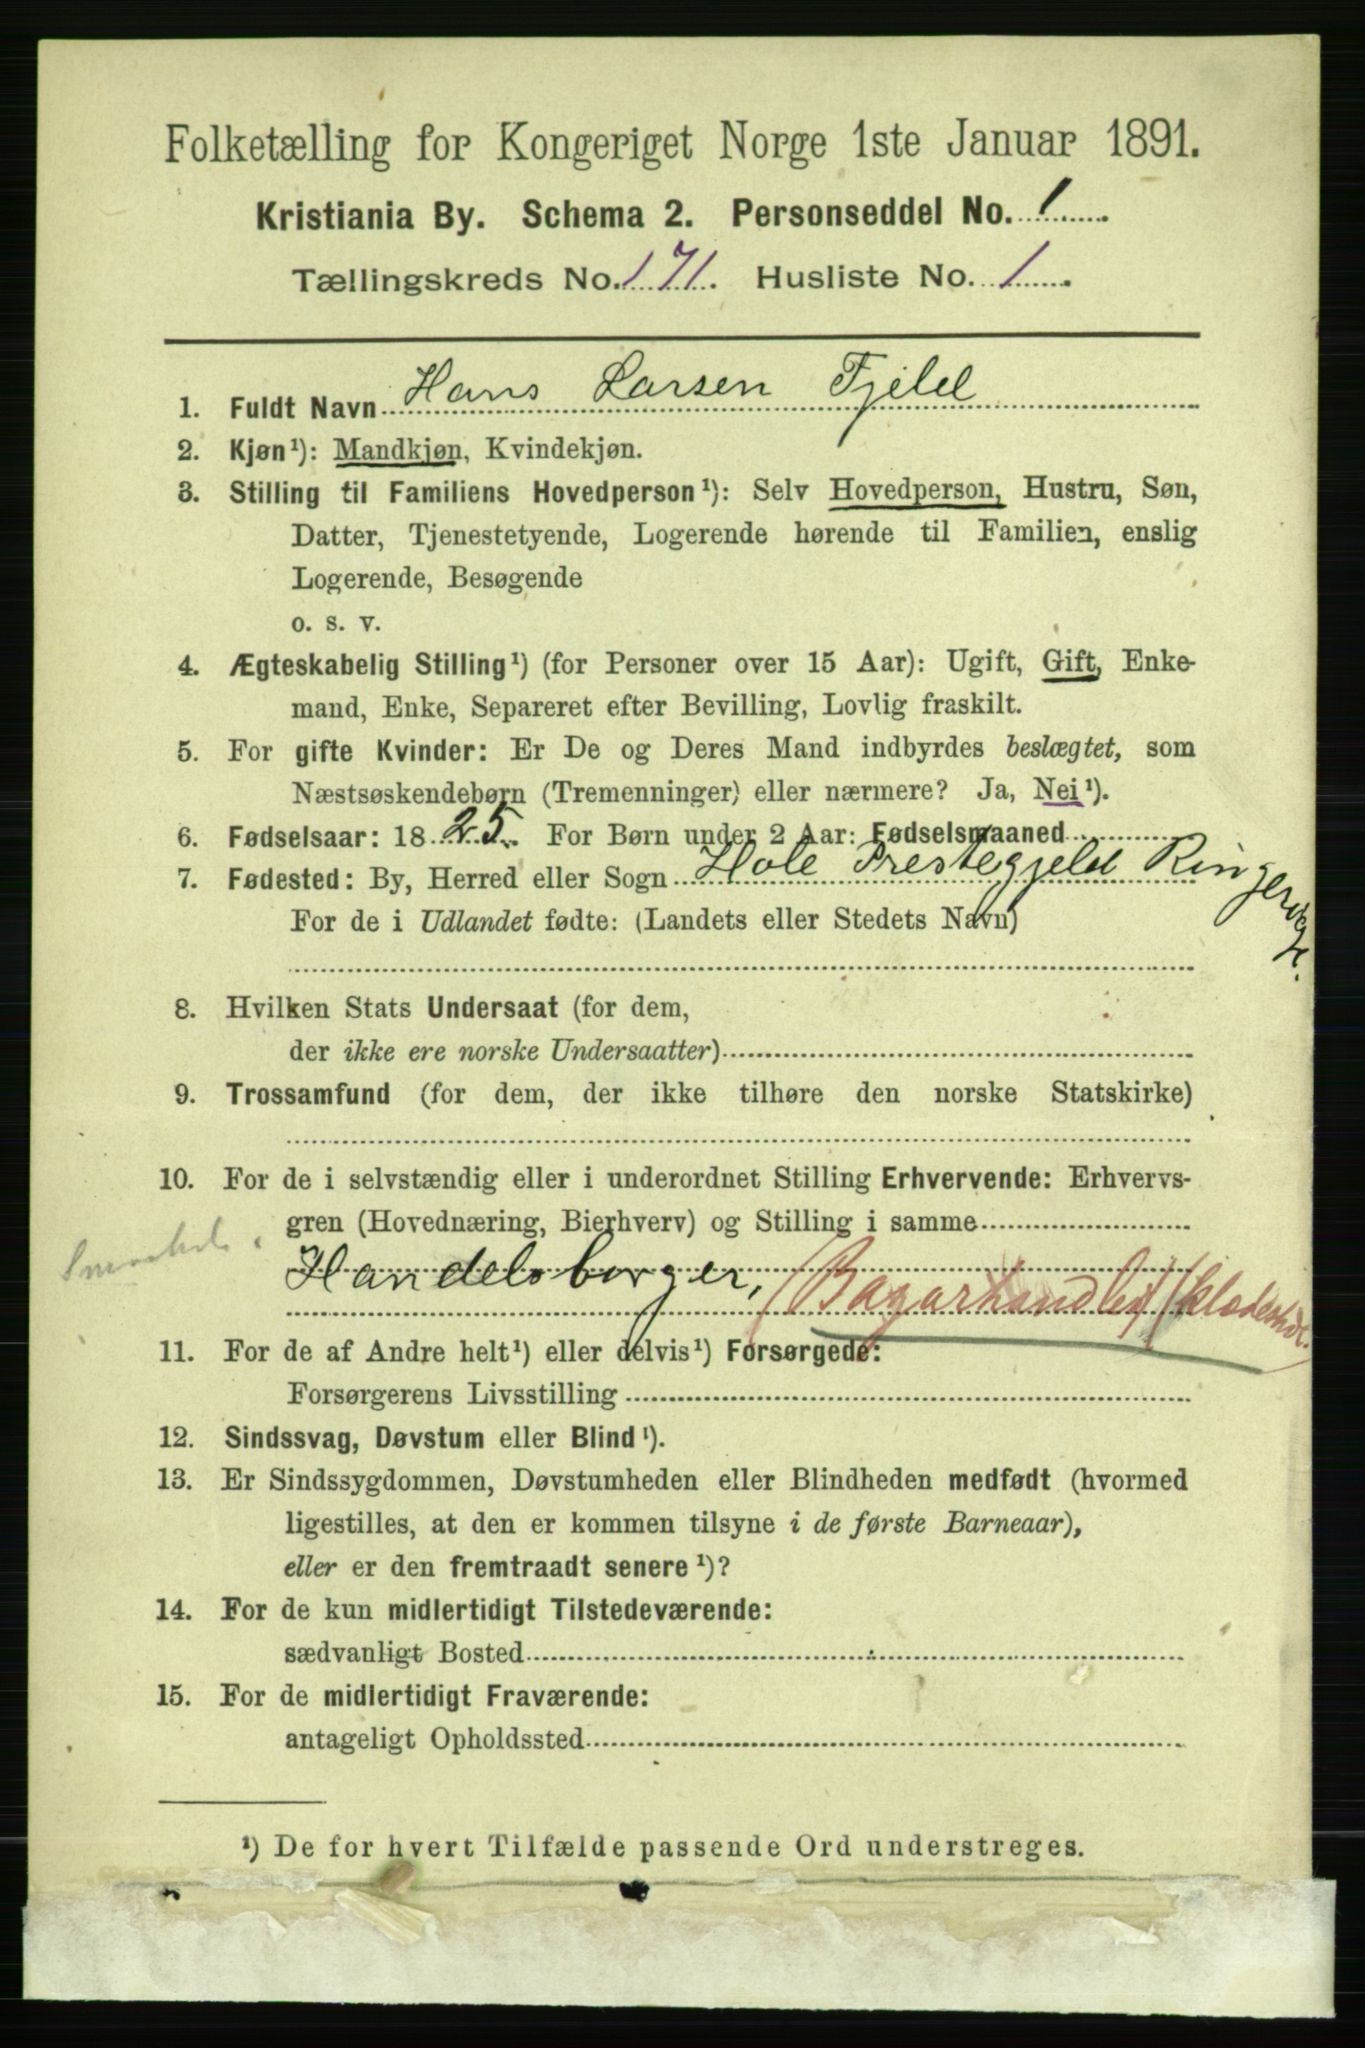 Folketælling for Kongeriget Norge 1ste Januar 1891.
Kristiania By. Schema 2. Personseddel No. 1
Tællingskreds No. 171. Husliste No. 1
1. Fuldt Navn Hans Larsen Fjeld
2. Kjøn¹): Mandkjøn, Kvindekjøn.
3. Stilling til Familiens Hovedperson¹): Selv Hovedperson, Hustru, Søn,
Datter, Tjenestetyende, Logerende hørende til Familien, enslig
Logerende, Besøgende
o. s. v.
4. Ægteskabelig Stilling¹) (for Personer over 15 Aar): Ugift, Gift, Enke-
mand, Enke, Separeret efter Bevilling, Lovlig fraskilt.
5. For gifte Kvinder: Er De og Deres Mand indbyrdes beslægtet, som
Næstsøskendebørn (Tremenninger) eller nærmere? Ja, Nei¹).
6. Fødselsaar: 1825. For Børn under 2 Aar: Fødselsmaaned
7. Fødested: By, Herred eller Sogn Hole Prestegjeld Ringerige.
For de i Udlandet fødte: (Landets eller Stedets Navn)
8. Hvilken Stats Undersaat (for dem,
der ikke ere norske Undersaatter)
9. Trossamfund (for dem, der ikke tilhøre den norske Statskirke)
10. For de i selvstændig eller i underordnet Stilling Erhvervende: Erhvervs-
gren (Hovednæring, Bierhverv) og Stilling i samme
Handelsborger, (Bazarhandler) (klædeshdl.
11. For de af Andre helt¹) eller delvis¹) Forsørgede:
Forsørgerens Livsstilling
12. Sindssvag, Døvstum eller Blind¹).
13. Er Sindssygdommen, Døvstumheden eller Blindheden medfødt (hvormed
ligestilles, at den er kommen tilsyne i de første Barneaar),
eller er den fremtraadt senere¹)?
14. For de kun midlertidigt Tilstedeværende:
sædvanligt Bosted
15. For de midlertidigt Fraværende:
antageligt Opholdssted
¹) De for hvert Tilfælde passende Ord understreges.